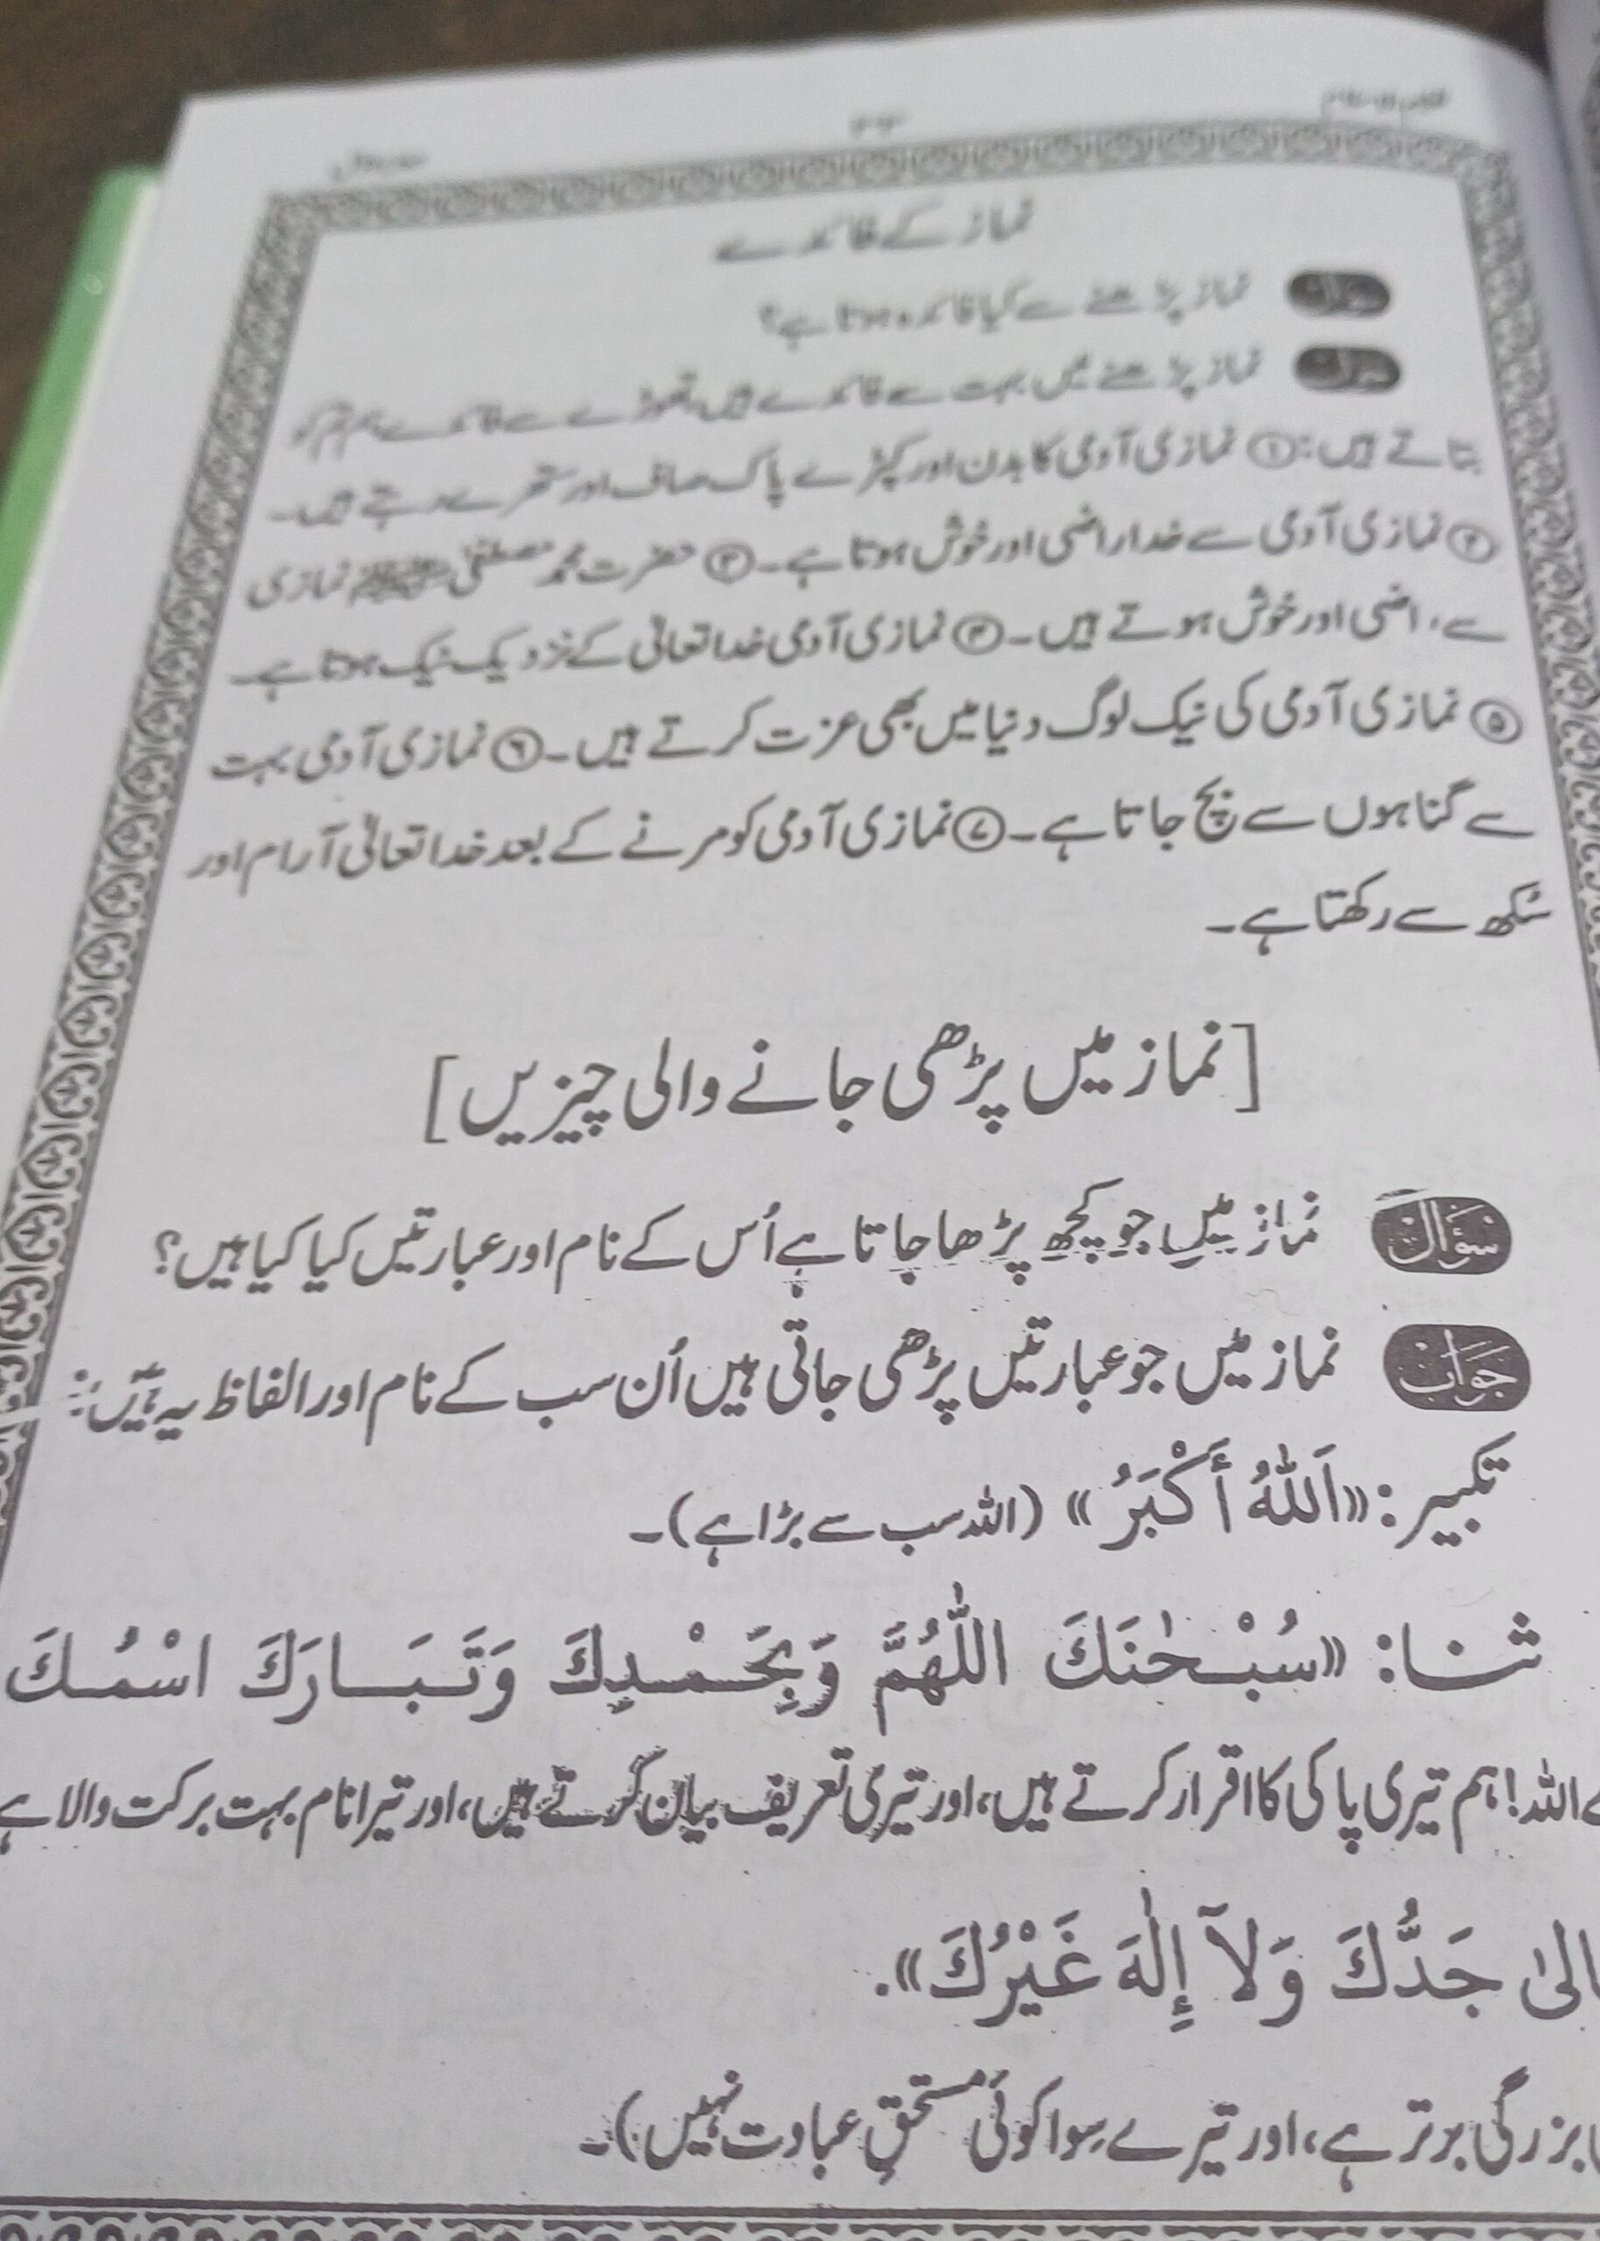 نماز کے فائدے
نماز پڑھنے سے کیا فائدہ ہوتا ہے؟
نماز پڑھنے میں بہت سے فائدے ہیں، تھوڑے سے فائدے ہم تم کو
بتاتے ہیں: ① نمازی آدمی کا بدن اور کپڑے پاک صاف اور ستھرے رہتے ہیں۔
② نمازی آدمی سے خدا راضی اور خوش ہوتا ہے۔ ③ حضرت محمد مصطفیٰ ﷺ نمازی
سے راضی اور خوش ہوتے ہیں۔ ④ نمازی آدمی خدا تعالیٰ کے نزدیک نیک ہوتا ہے۔
⑤ نمازی آدمی کی نیک لوگ دنیا میں بھی عزت کرتے ہیں۔ ⑥ نمازی آدمی بہت
سے گناہوں سے بچ جاتا ہے۔ ⑦ نمازی آدمی کو مرنے کے بعد خدا تعالیٰ آرام اور
سُکھ سے رکھتا ہے۔
[نماز میں پڑھی جانے والی چیزیں]
سُوَال نماز میں جو کچھ پڑھا جاتا ہے اُس کے نام اور عبارتیں کیا کیا ہیں؟
جَوَاب نماز میں جو عبارتیں پڑھی جاتی ہیں اُن سب کے نام اور الفاظ یہ ہیں:
تکبیر: «اَللّٰهُ أَكْبَرُ» (اللہ سب سے بڑا ہے)۔
ثنا: «سُبْحٰنَكَ اللّٰهُمَّ وَبِحَمْدِكَ وَتَبَارَكَ اسْمُكَ
اللہ! ہم تیری پاکی کا اقرار کرتے ہیں، اور تیری تعریف بیان کرتے ہیں، اور تیرا نام بہت برکت والا ہے
الىٰ جَدُّكَ وَلَآ إِلٰهَ غَيْرُكَ».
بزرگی برتر ہے، اور تیرے سِوا کوئی مستحقِ عبادت نہیں)۔